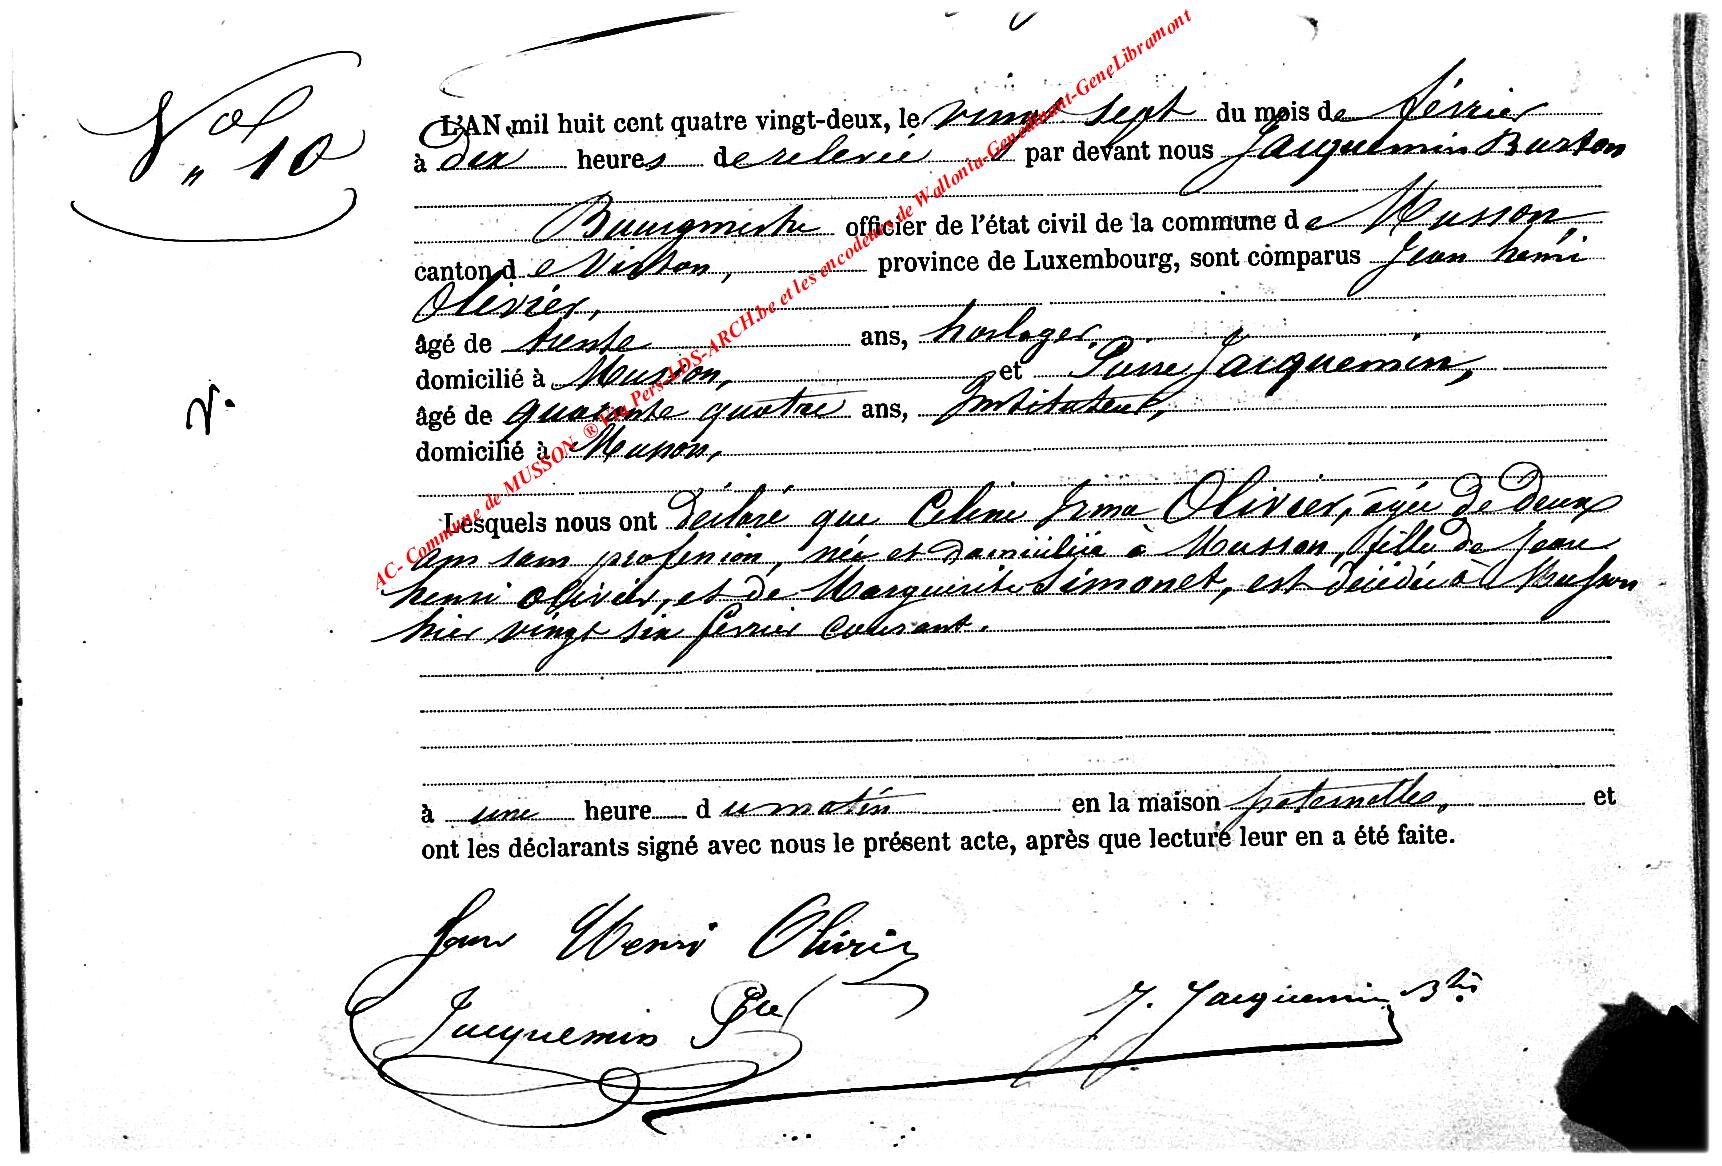 N° 10
L'AN mil huit cent quatre vingt-deux, le vingt sept du mois de février
à Dix heures de relevée par devant nous Jacquemin Burton
Bourgmestre officier de l'état civil de la commune de Musson,
canton de Virton, province de Luxembourg, sont comparus Jean henri
Olivier,
âgé de trente ans, horloger,
domicilié à Musson, et Pierre Jacquemin,
âgé de quarante quatre ans, Instituteur,
domicilié à Musson,
Lesquels nous ont déclaré que Celine Irma Olivier, agée de deux
ans sans profession, née et domiciliée à Musson, fille de Jean
henri Olivier, et de Marguerite Simonet, est décédée à Musson
hier vingt six février courant.
à une heure du matin en la maison paternelle, et
ont les déclarants signé avec nous le présent acte, après que lecture leur en a été faite.
Jean Henri Olivier
Jacquemin Pre
J. Jacquemin Bton
AC- Commune de MUSSON ® Via Pers-LDS-ARCH.be et les encodeurs de Wallonia-Genedinant-GeneLibramont